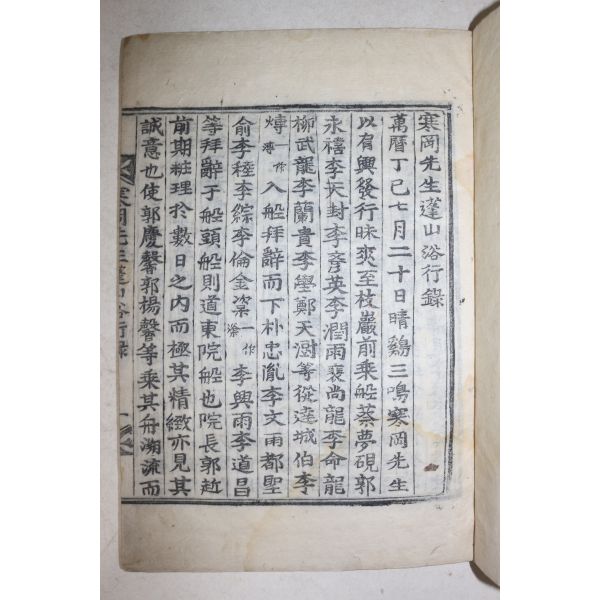 寒岡先生蓬山浴行錄
萬曆丁巳七月二十日晴鷄三鳴寒岡先生
以有輿發行昧爽至枝巖前乘船蔡夢硯郭
永禧李天封李彦英李潤雨裵尚龍李命龍
柳武龍李蘭貴李𡒉鄭天澍等從達城伯李
煿一作溥入船拜辭而下朴忠胤李文雨都聖
俞李稑李綜李倫金䆃一作榮李興雨李道昌
等拜辭于船頭船則道東院船也院長郭赾
前期粧理於數日之內而極其精緻亦見其
誠意也使郭慶馨郭楊馨等乘其舟溯流而
寒岡先生蓬山浴行錄 一